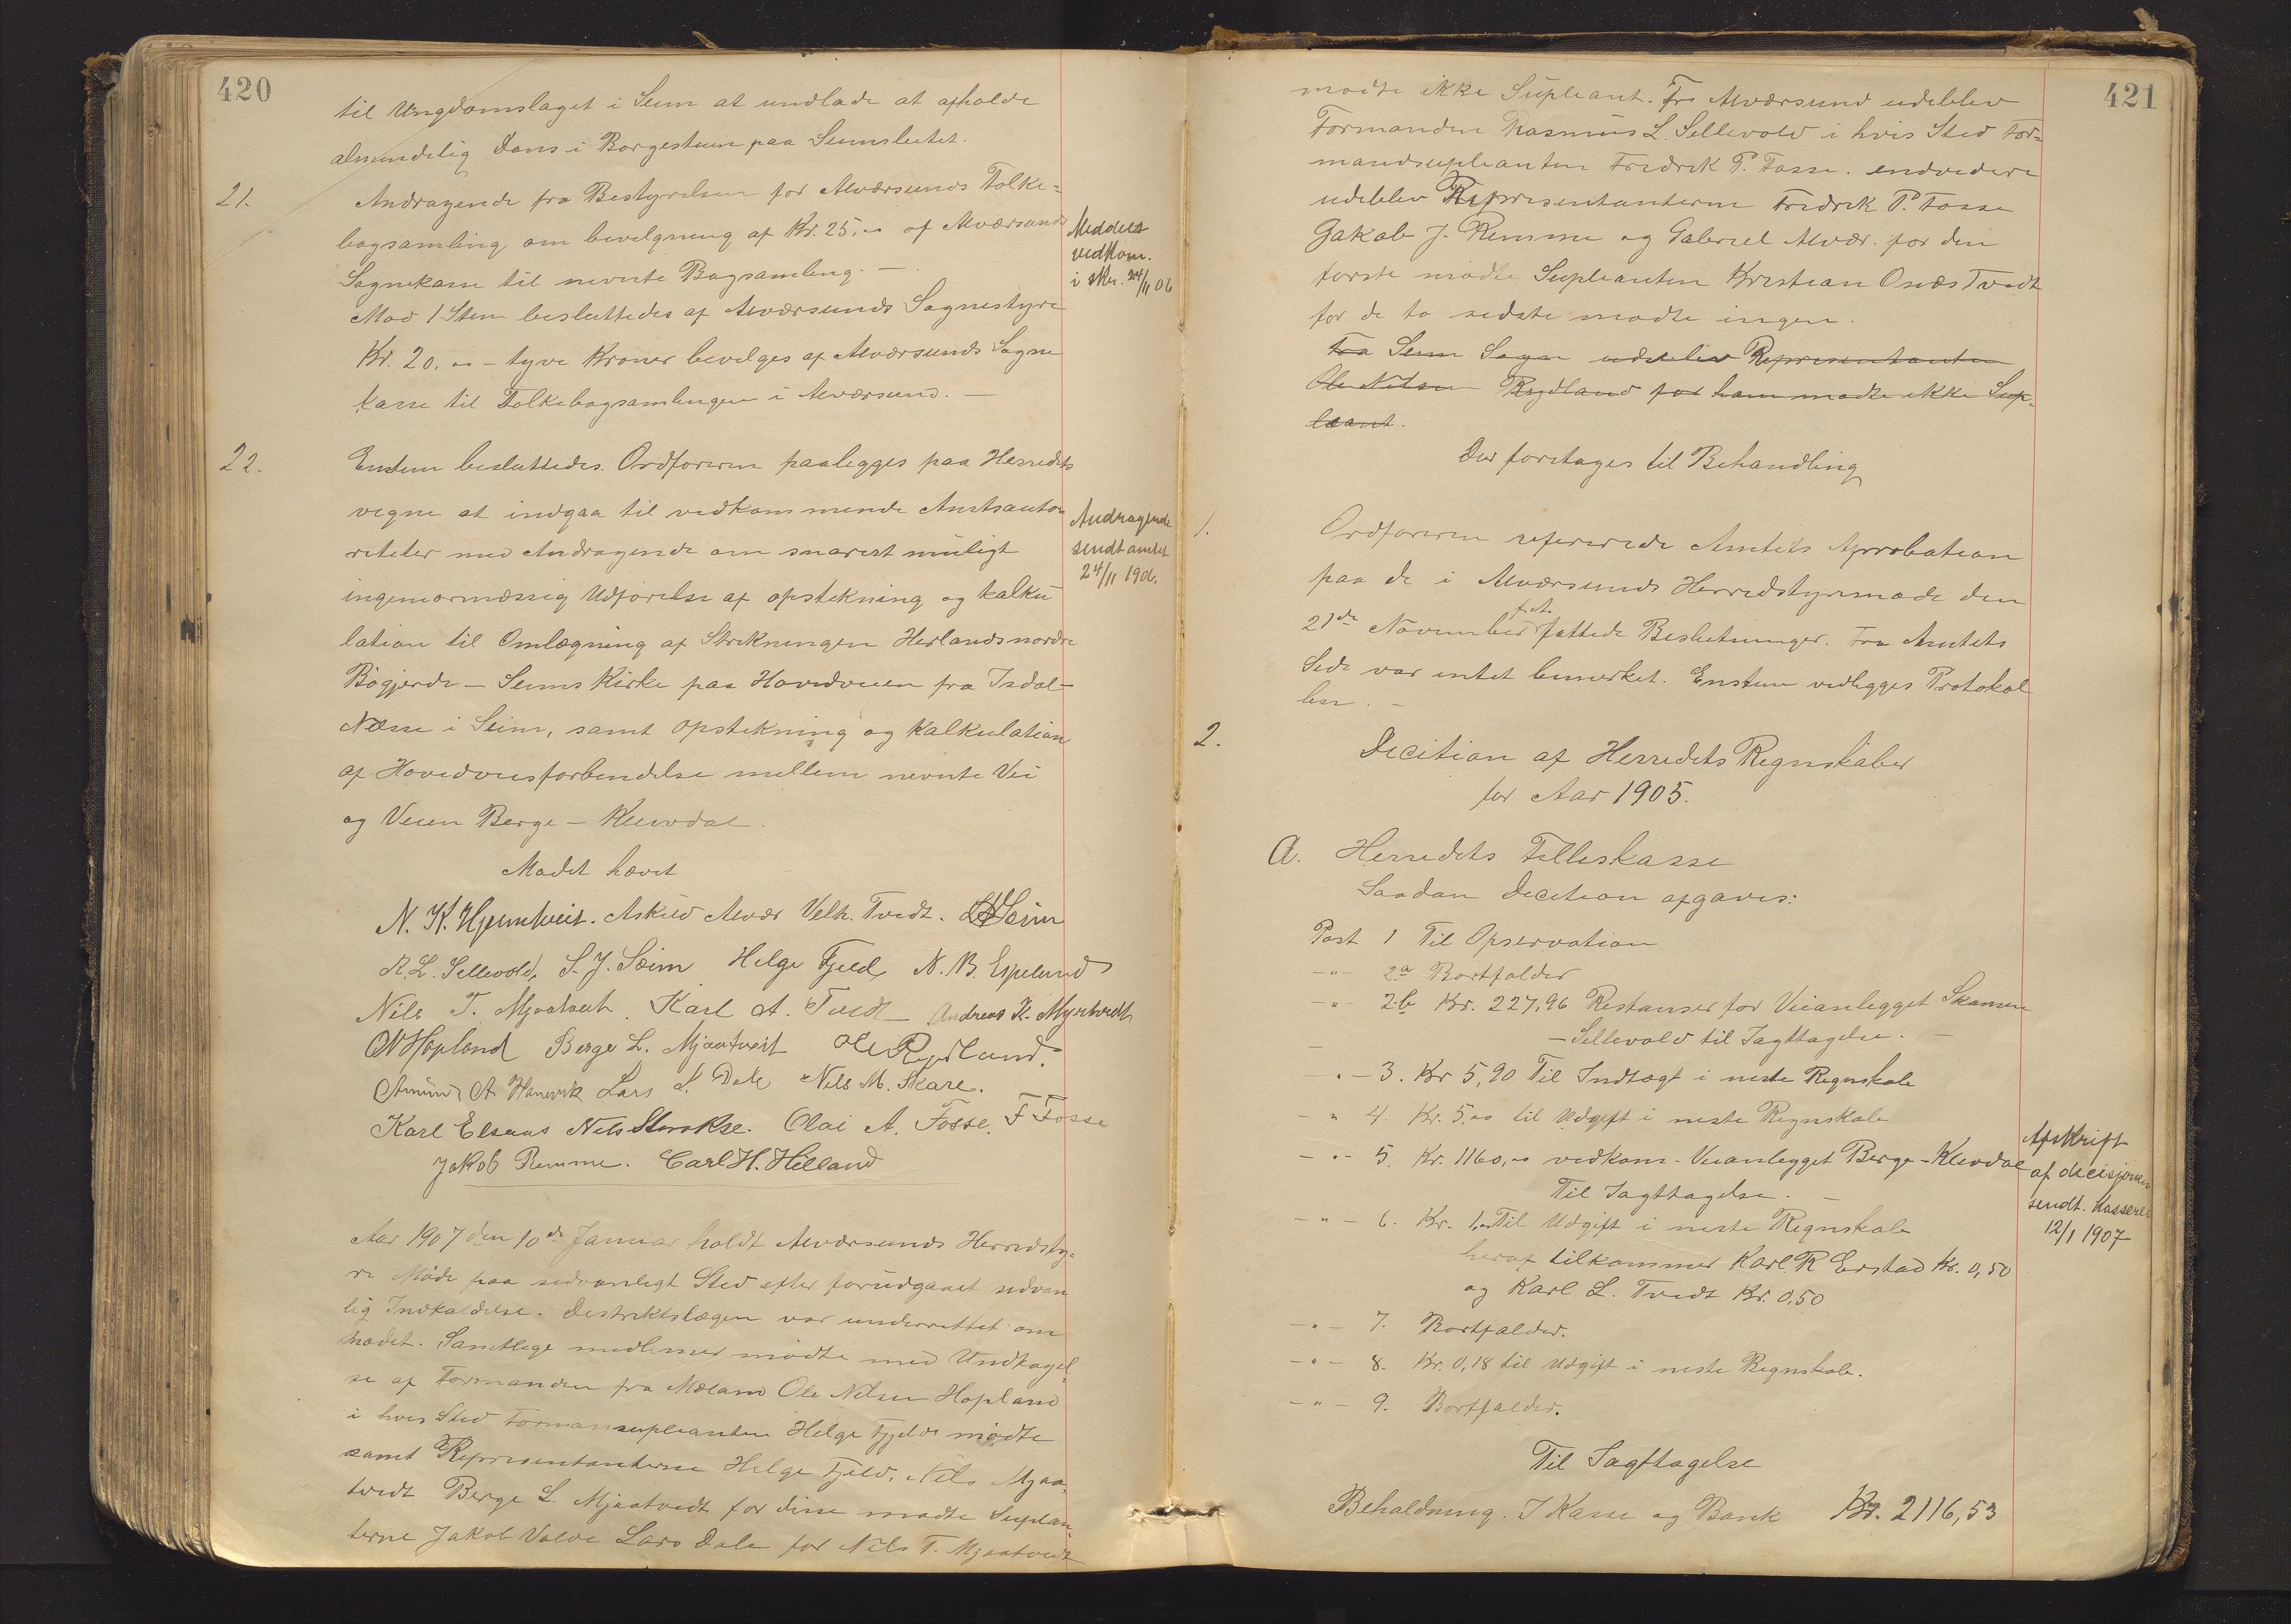 420
til Ungdomslaget i Seim at undlade at afholde
almindelig Dans i Borgestuen paa Seimsleitet.
21.
Andragende fra Bestyrelsen for Alværsunds Folke-
bogsamling om bevilgning af Kr. 25,00 af Alværsunds
Sognekasse til nevnte Bogsamling. —
Mod 1 Stem besluttedes af Alværsunds Sognestyre
Kr. 20,00 – tyve Kroner bevilges af Alværsunds Sogne
kasse til Folkebogsamlingen i Alværsund. —
Meddelt
vedkom.
i skr. 24/11 06
22.
Enstem besluttedes. Ordføreren paalegges paa Herredets
vegne at indgaa til vedkommende Amtsauto
riteter med Andragende om snarest muligt
ingeniørmæssig Udførelse af opstikning og kalku
lation til Omlægning af Strekningen Herlandsnordre
Bøgjerde – Seims Kirke paa Hovedveien fra Isdal –
Næsse i Seim, samt opstikning og kalkulation
af Hovedveisforbindelse mellem nevnte Vei
og Veien Berge – Kleivdal.
Andragende
sendt amtet
24/11 1906.
Mødet hævet
N. K. Hjemtveit. Askild Alvær Velh. Tvedt. L Seim
R. L. Sellevold, S. J. Seim Helge Fjeld N. B. Espelund
Nils T. Mjaatveit. Karl A. Tvedt Andreas K. Myrtvedt
O N Hopland Berge L. Mjaatveit Ole Rydland.
Amund A Hanevik Lars L. Dale Nils M. Skare.
Karl Elsaas Nels Storakse. Olai A. Fosse. F Fosse
Jakob Remme. Carl H. Helland
Aar 1907 den 10de Januar holdt Alværsunds Herredsty-
re Møde paa sedvanligt Sted efter forudgaaet sedvan
lig Indkaldelse. Destriktslægen var underrettet om
mødet. Samtlege medlemer mødte med Undtagel
se af Formanden fra Mæland Ole Nilsen Hopland
i hvis Sted Formansupleanten Helge Fjeld mødte
samt Representanterne Helge Fjeld, Nils Mjaa-
tvedt Berge L. Mjaatvedt for disse mødte Suplean
terne Jakob Valde Lars Dale for Nils T. Mjaatvedt
421
mødte ikke Supleant. Fra Alværsund udeblev
Formanden Rasmus L. Sellevold i hvis Sted For-
mandsupleanten Fredrik P. Fosse. endvedere
udeblev Representanterne Fredrik P. Fosse
Jakob J. Remme og Gabriel Alvær. for den
første mødte Supleanten Kristian Onæs Tvedt
for de to sedste mødte ingen.
Fra Seim Sogn udeblev Representanten
Ole Nilsen Rydland for ham mødte ikke Sup-
leant.
Der foretages til Behandling
1.
Ordføreren refererede Amtets Aprobation
paa de i Alværsunds Herredstyremøde den
21de November f. A. fattede Beslutninger. Fra Amtets
Side var intet bemerket. Enstem vedlegges Protokol
len. –
2.
Decition af Herredets Regnskaber
for Aar 1905.
a. Herredets Felleskasse
Saadan Decition afgaves:
Post 1 Til Opservation
–"– 2a Bortfalder
–"– 2b Kr. 227,96 Restanser for Veianlegget Skamen
– Sellevold til Iagttagelse. –
–"– 3. Kr 5,90 Til Indtægt i neste Regnskab
–"– 4. Kr. 5,00 til Udgift i neste Regnskab
–"– 5. Kr. 1160,00 vedkom. Veianlegget Berge – Kleivdal
Til Iagttagelse. –
–"– 6. Kr. 1,00 Til Udgift i neste Regnskab
heraf tilkommer Karl R Erstad Kr. 0,50
og Karl L. Tvedt Kr. 0,50
–"– 7. Bortfalder.
–"– 8. Kr. 0,18 til Udgift i neste Regnskab.
–"– 9. Bortfalder.
Afskrift
af decisjonen
sendt. Kasserer
12/1 1907
Til Iagttagelse
Beholdning. I Kasse og Bank Kr. 2116,53